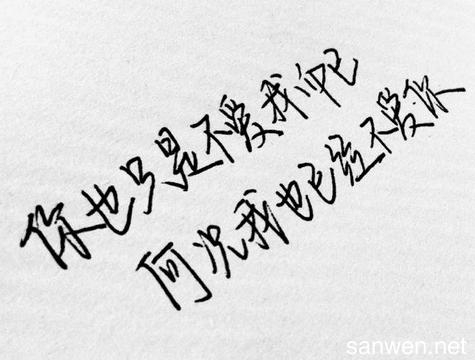 你也只是不爱我吧
何况我也已经不爱你
sanwen.net